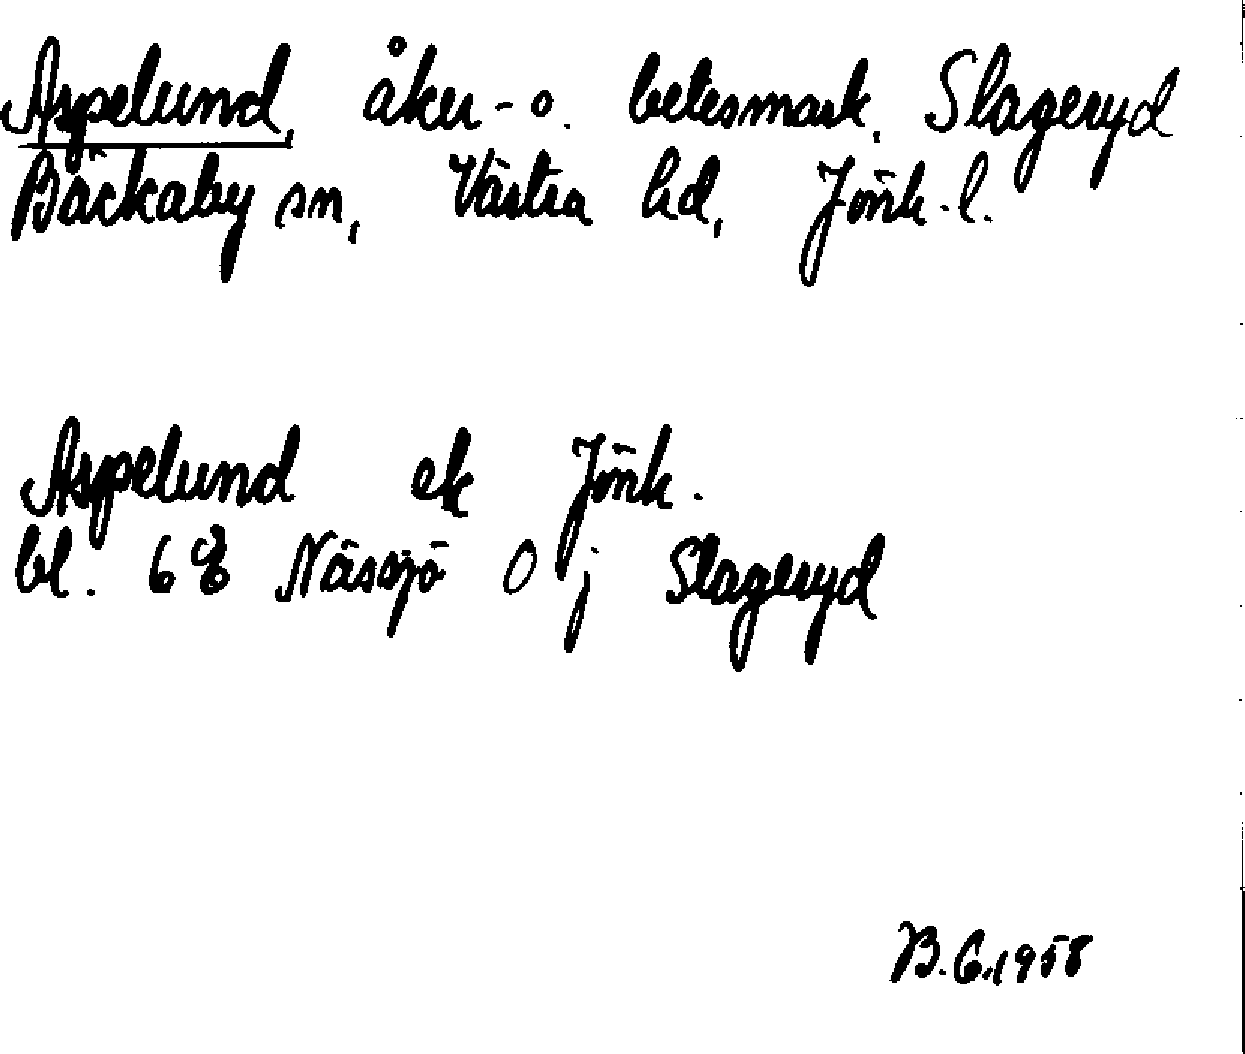 Aspelund, åker- o. betesmark, Slageryd
Bäckaby sn, Västra hd, Jönk. l.
Aspelund ek Jönk.
bl. 68 Nässjö O j Slageryd
B.G. 1958